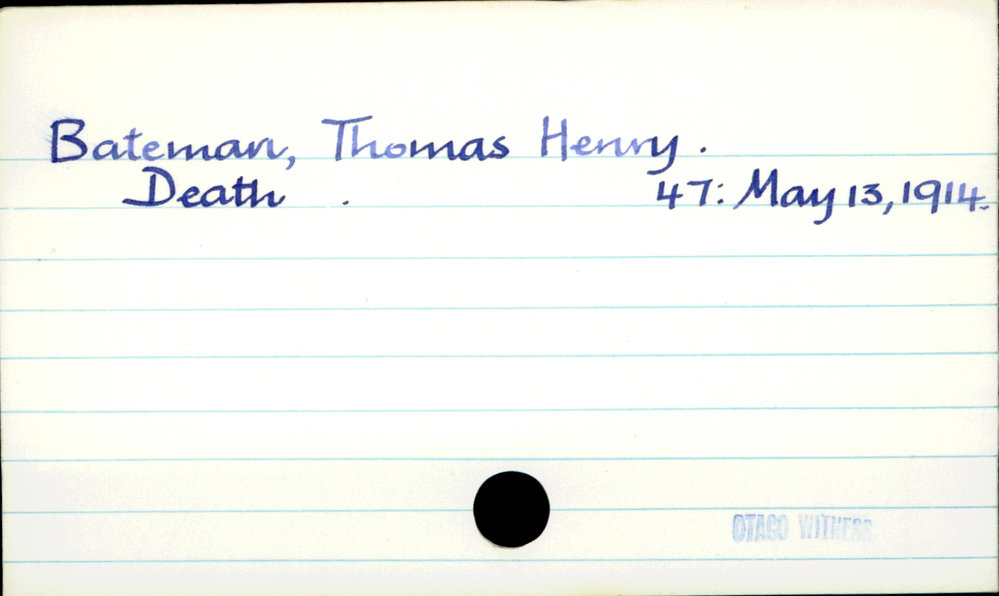 Bateman, Thomas Henry.
Death . 47: May 13, 1914.
OTAGO WITNESS